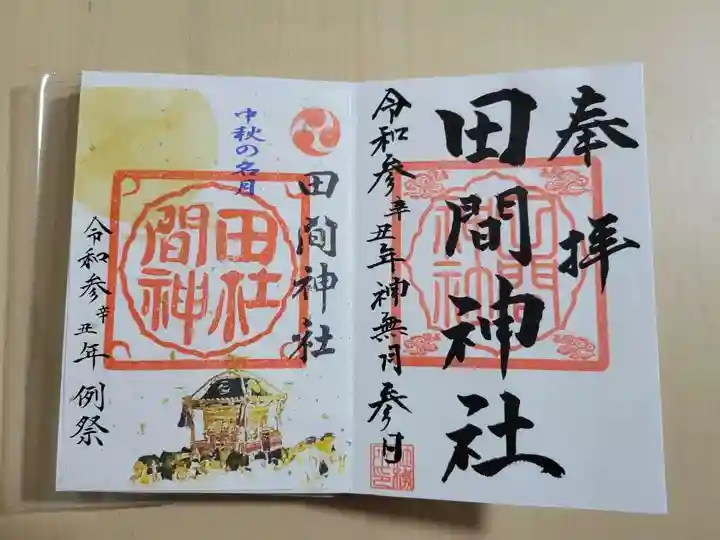 奉拝
田間神社
令和参辛丑年神無月参日
中秋の名月
田間神社
田社
間神
令和参辛丑年例祭